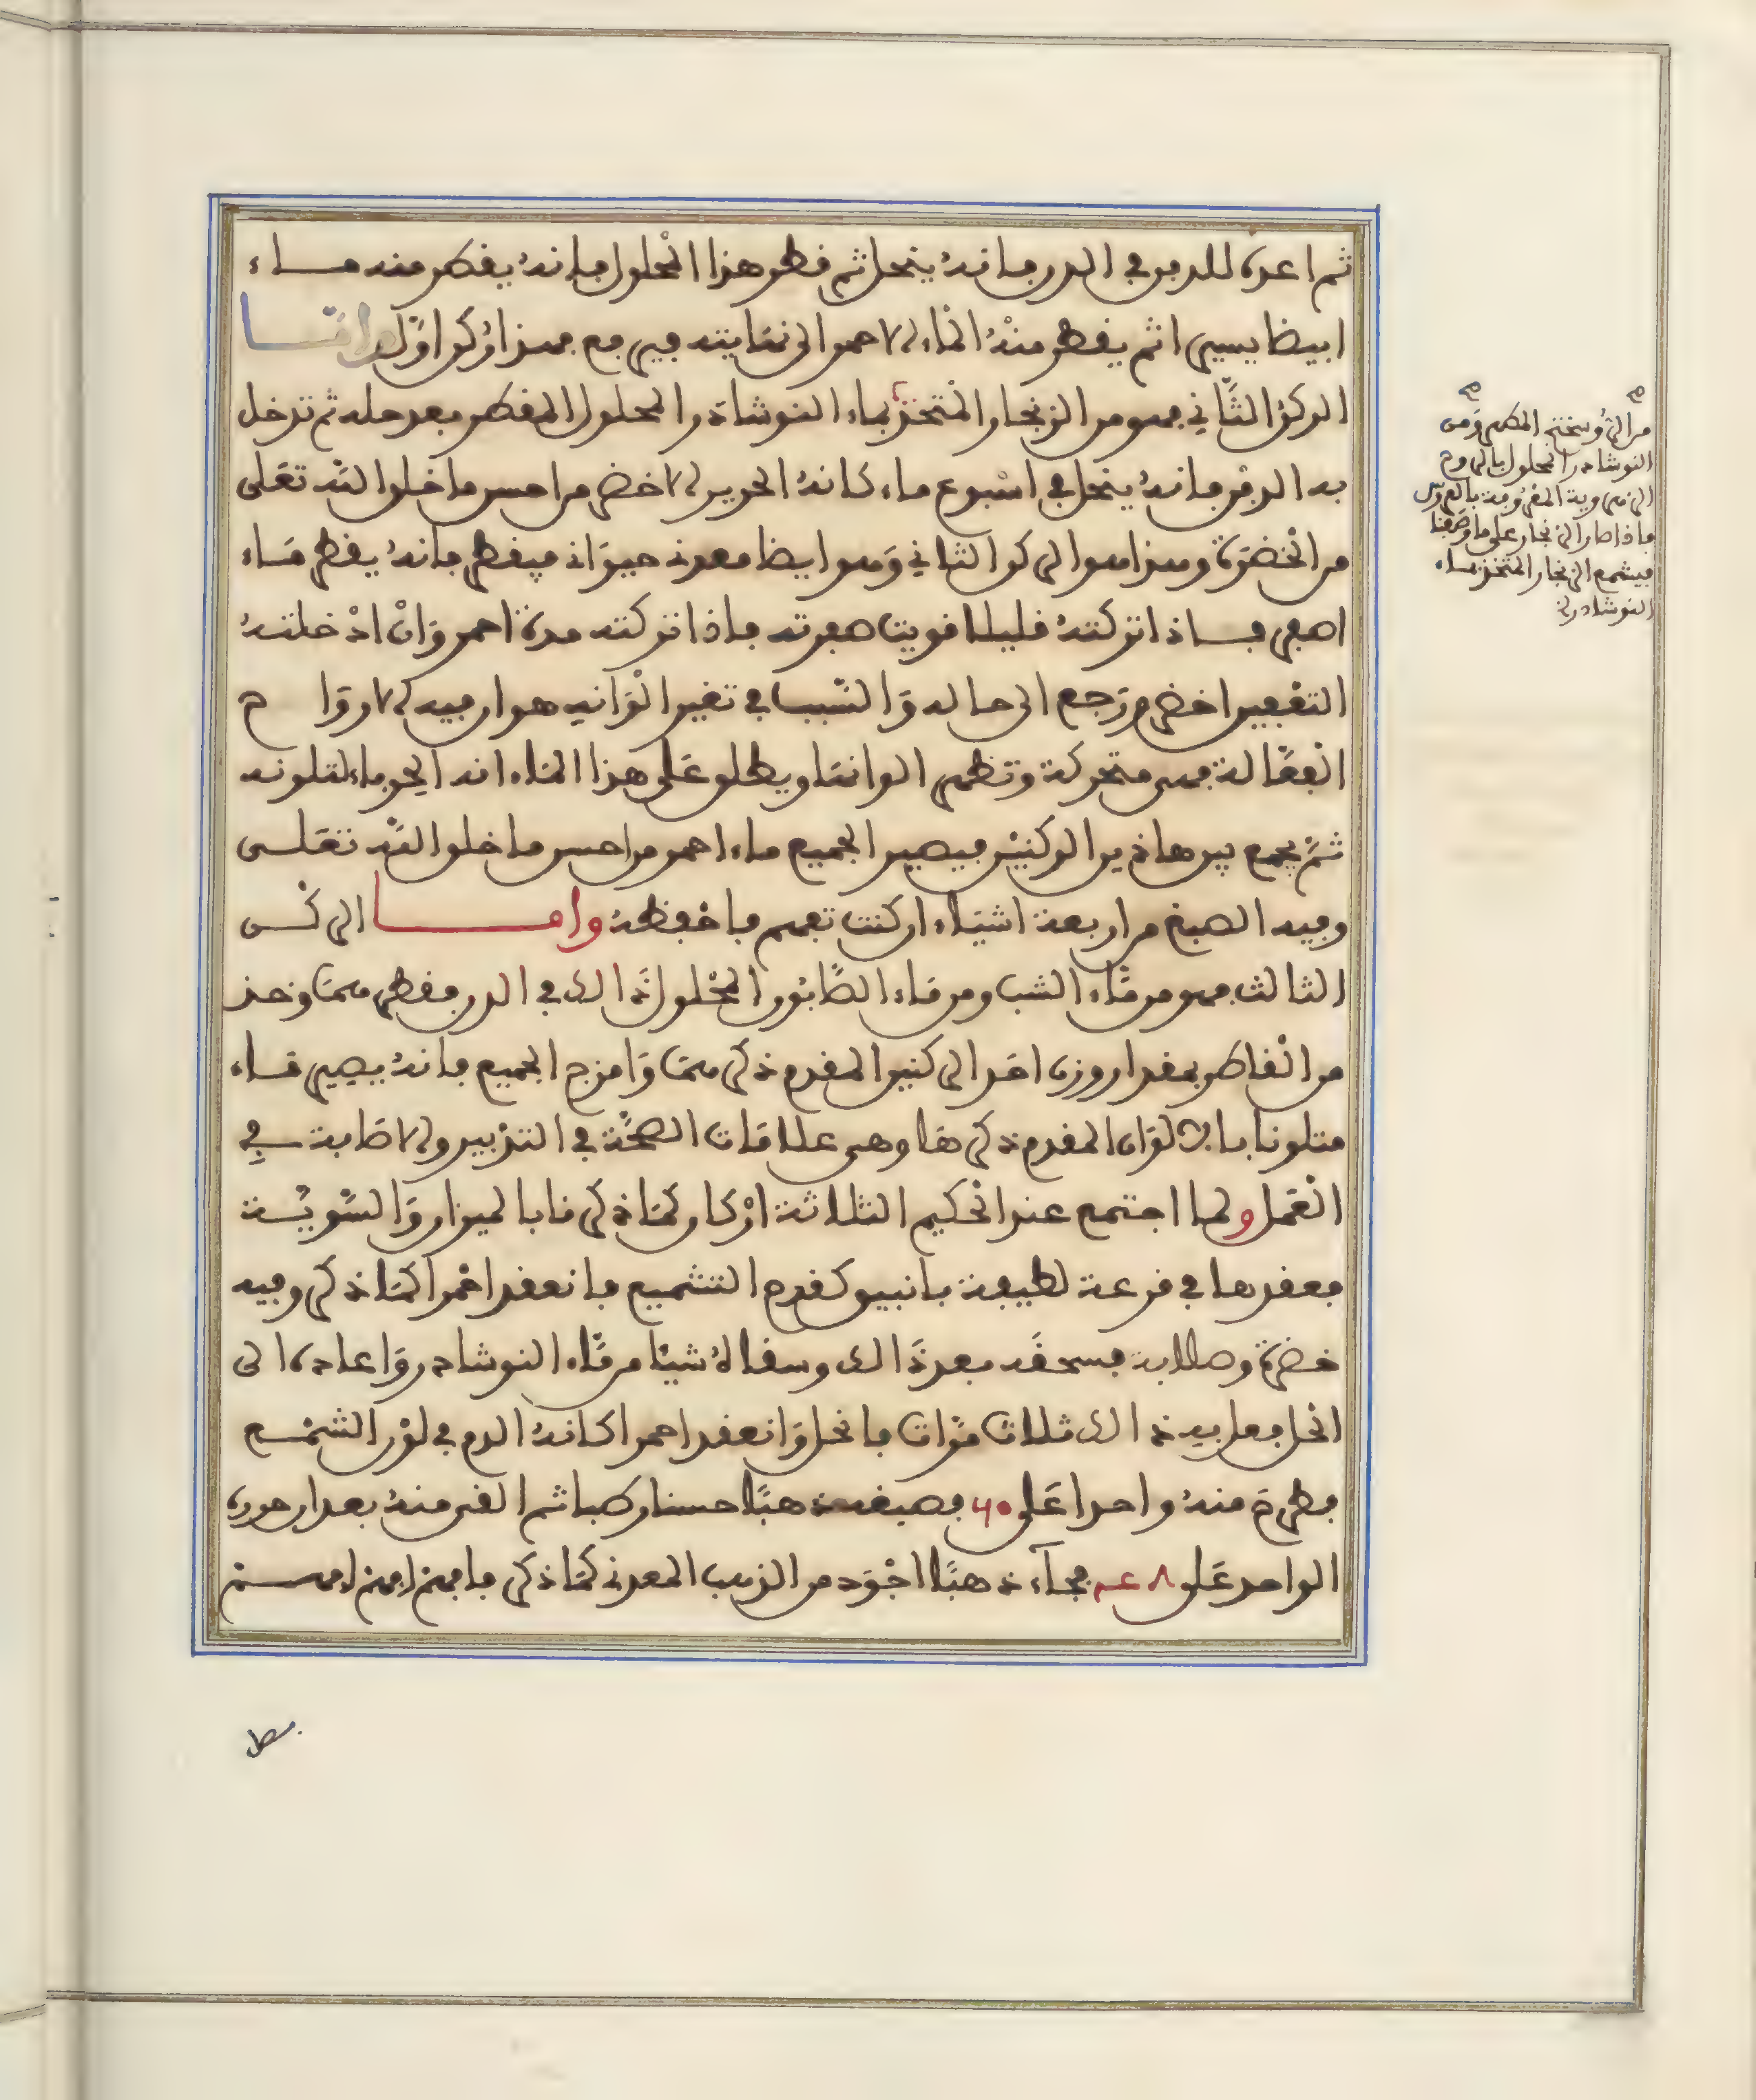 ثم اعده للدفن في الدن فانه ينحل ثم قطر هذا المحلول فانه يقطر منه ماء
ابيضا يسيرا ثم يقطر منه الماء الاحمر الى نهايته فيرفع فهذا ركن اول واما
الركن الثاني فهو من الزنجار المتخذ بماء النوشادر المحلول المقطر بعد حله ثم تدخل
به الدفن فانه ينحل في اسبوع ماء كانه الحرير الاخضر من احسن ما خلق الله تعلى
من الخضرة وهذا هو الركن الثاني وهو ايضا معدني حيواني فيقطر فانه يقطر ماء
اصفر فاذا تركته قليلا قويت صفرته فاذا تركته مدة احمر وان ادخلته
التعفين اخضر ورجع الى حاله والسبب في تغير الوانه هو ان فيه الارواح
الفعالة فهي متحركة وتظهر الوانها ويطلق على هذا الماء انه ابو فلمون لتلونه
ثم يجمع بين هاذين الركنين فيصير الجميع ماء احمر من احسن ما خلق الله تعلى
وفيه الصبغ من اربعة اشياء ان كنت تفهم فاحفظه واما الركن
الثالث فهو من ماء الشب ومن ماء الصابون المحلول ذالك في الدن فقطرهما وخذ
من القاطر بمقدار وزن احد الركنين المقدم ذكرهما وامزج الجميع فانه يصير ماء
متلونا بالالوان المقدم ذكرها وهي علامات الصحة في التدبير والاصابة في
العمل ولما اجتمع عند الحكيم الثلاثة اركان كما ذكرنا بالميزان والتسوية
فعقدها في قرعة لطيفة بانبيق كقدح التشميع فانعقد احمرا كما ذكر وفيه
خضرة وصلابة فسحقه بعد ذالك وسقاه شيئا من ماء النوشادر واعاده الى
الحل فعل به ذالك ثلاث مرات فانحل وانعقد احمرا كانه الدم في لون الشمع
فطرح منه واحدا على ٦٠ فصبغه ذهبا حسنا رطبا ثم القى منه بعد ان حوره
الواحد على فجاء ذهبا اجود من الذهب المعدني كما ذكر فافهم افهم افهم
من الروسختج المطهر ومن
النوشادر المحلول بالروح
فاذا صار الزنجار على ما وصفنا
فيشمع الزنجار المتخذ بماء
النوشادر